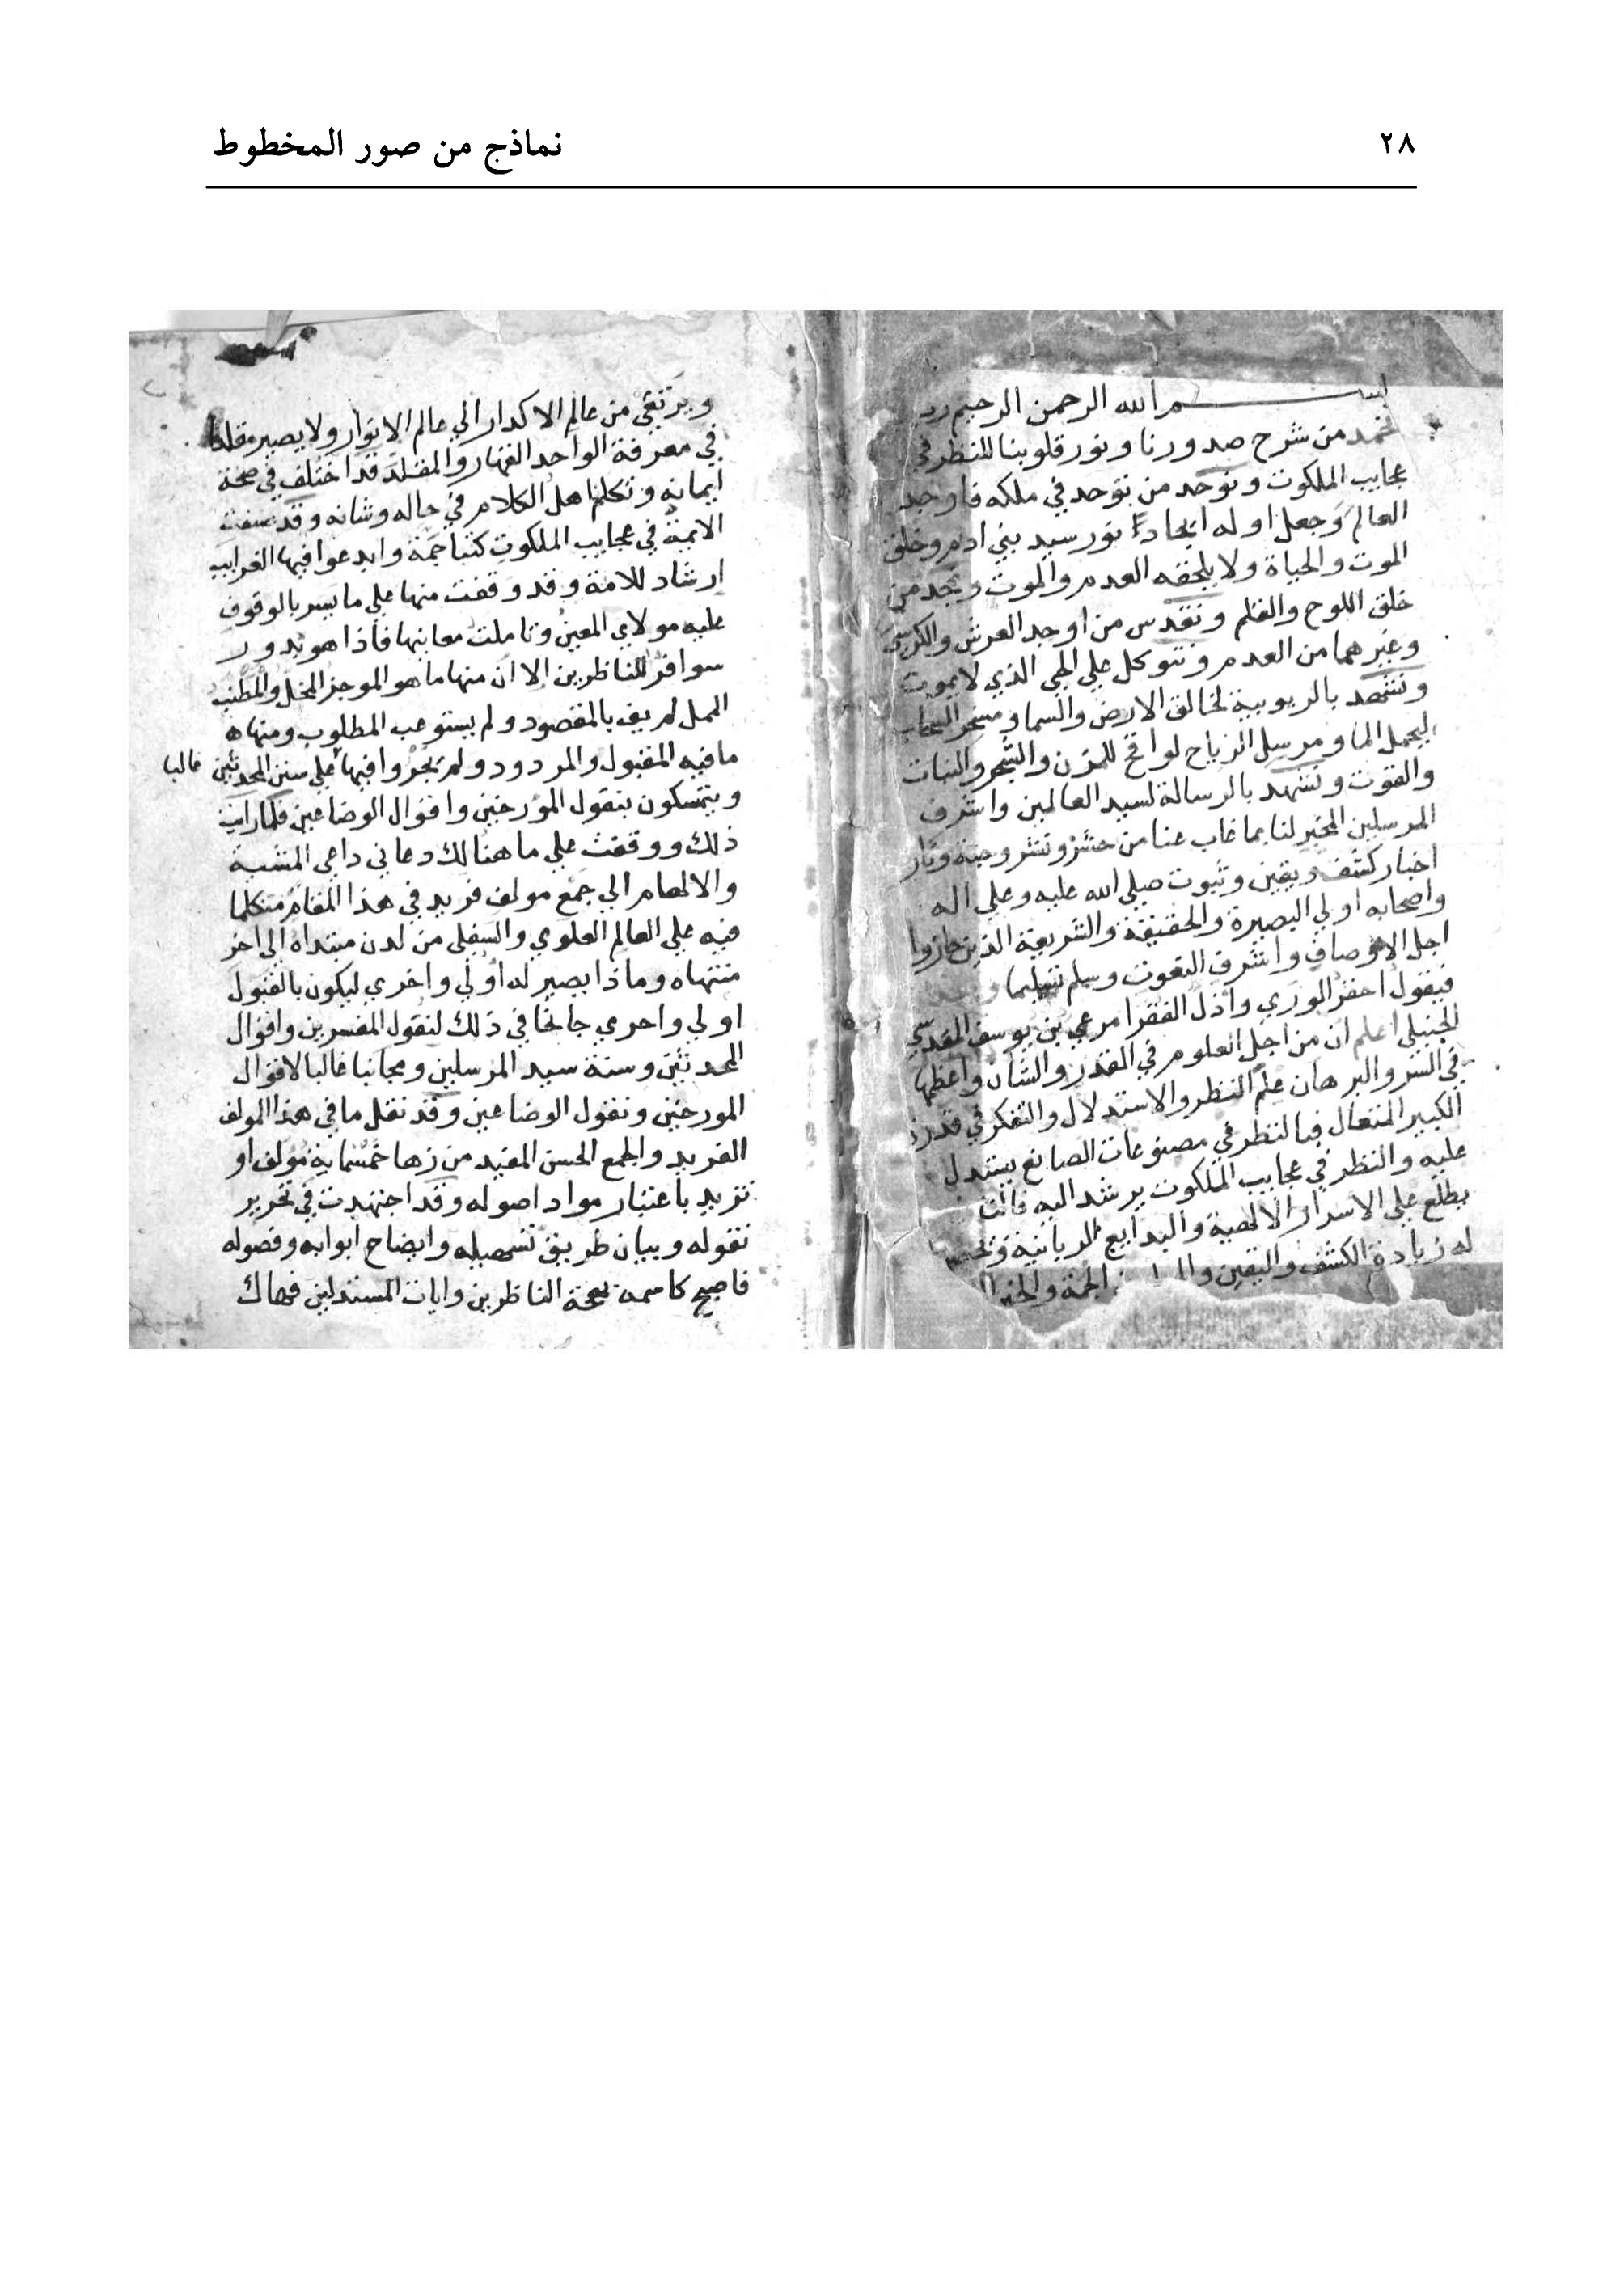 ٢٨
نماذج من صور المخطوط
بسم الله الرحمن الرحيم
نحمد من شرح صدورنا ونور قلوبنا للنظر في
عجايب الملكوت ونوحد من توحد في ملكه فاوجد
العالم وجعل اوله ايجادا نور سيد بني ادم وخلق
الموت والحياة ولا يلحقه العدم والموت ونمجد من
خلق اللوح والقلم ونقدس من اوجد العرش والكرسي
وغيرهما من العدم ونتوكل علي الحي الذي لا يموت
ونشهد بالربوبية لخالق الارض والسما ومسخر السحاب
ليحمل الما ومرسل الرياح لواقح للمزن والشجر والنبات
والقوت ونشهد بالرسالة لسيد العالمين واشرف
المرسلين المخبر لنا بما غاب عنا من حشر ونشر وجنة ونار
اخبار كشف ويقين وثبوت صلي الله عليه وعلي اله
واصحابه اولي البصيرة والحقيقة والشريعة الذين حازوا
اجل الاوصاف واشرف النعوت وسلم تسليما
فيقول احقر الوري واذل الفقرا مرعي بن يوسف المقدسي
الحنبلي اعلم ان من اجل العلوم في القدر والشان واعظمها
في السر والبرهان علم النظر والاستدلال والتفكر في قدرة
الكبير المتعال فبالنظر في مصنوعات الصانع يستدل
عليه والنظر في عجايب الملكوت يرشد اليه فالنا
يطلع علي الاسرار الالهية والبدايع الربانية
له زيادة الكشف واليقين الجمة
ويرتقي من عالم الاكدار الي عالم الانوار ولا يصير مقلدا
في معرفة الواحد القهار والمقلد قد اختلف في صحة
ايمانه وتكلم اهل الكلام في حاله وشانه وقد صنفت
الايمة في عجايب الملكوت كتبا جمة وابدعوا فيها الغرايب
ارشاد للامة وقد وقفت منها علي ما يسر بالوقوف
عليه مولاي المعين وتاملت معانيها فاذا هو بدور
سوافر للناظرين الا ان منها ما هو الموجز المخل والمطنب
الممل لم يف بالمقصود ولم يستوعب المطلوب ومنها ه
ما فيه المقبول والمردود ولم يجروا فيها علي سنن المحدثين غالبا
ويتمسكون بنقول المورخين واقوال الوضاعين فلما رايت
ذلك ووقفت علي ما هنالك دعاني داعي المشية
والالهام الي جمع مولف فريد في هذا المقام متكلما
فيه علي العالم العلوي والسفلي من لدن مبتداه الي اخر
منتهاه وماذا يصير له اولي واخري ليكون بالقبول
اولي واحري جانحا في ذلك لنقول المفسرين واقوال
المحدثين وسنة سيد المرسلين ومجانبا غالبا لاقوال
المورخين ونقول الوضاعين وقد نقل ما في هذا المولف
الفريد والجمع الحسن المفيد من زها خمسماية مولف او
تزيد باعتبار مواد اصوله وقد اجتهدت في تحرير
نقوله وبيان طريق تسهيله وايضاح ابوابه وفصوله
فاصبح كاسمه بهجة الناظرين وايات المستدلين فهاك